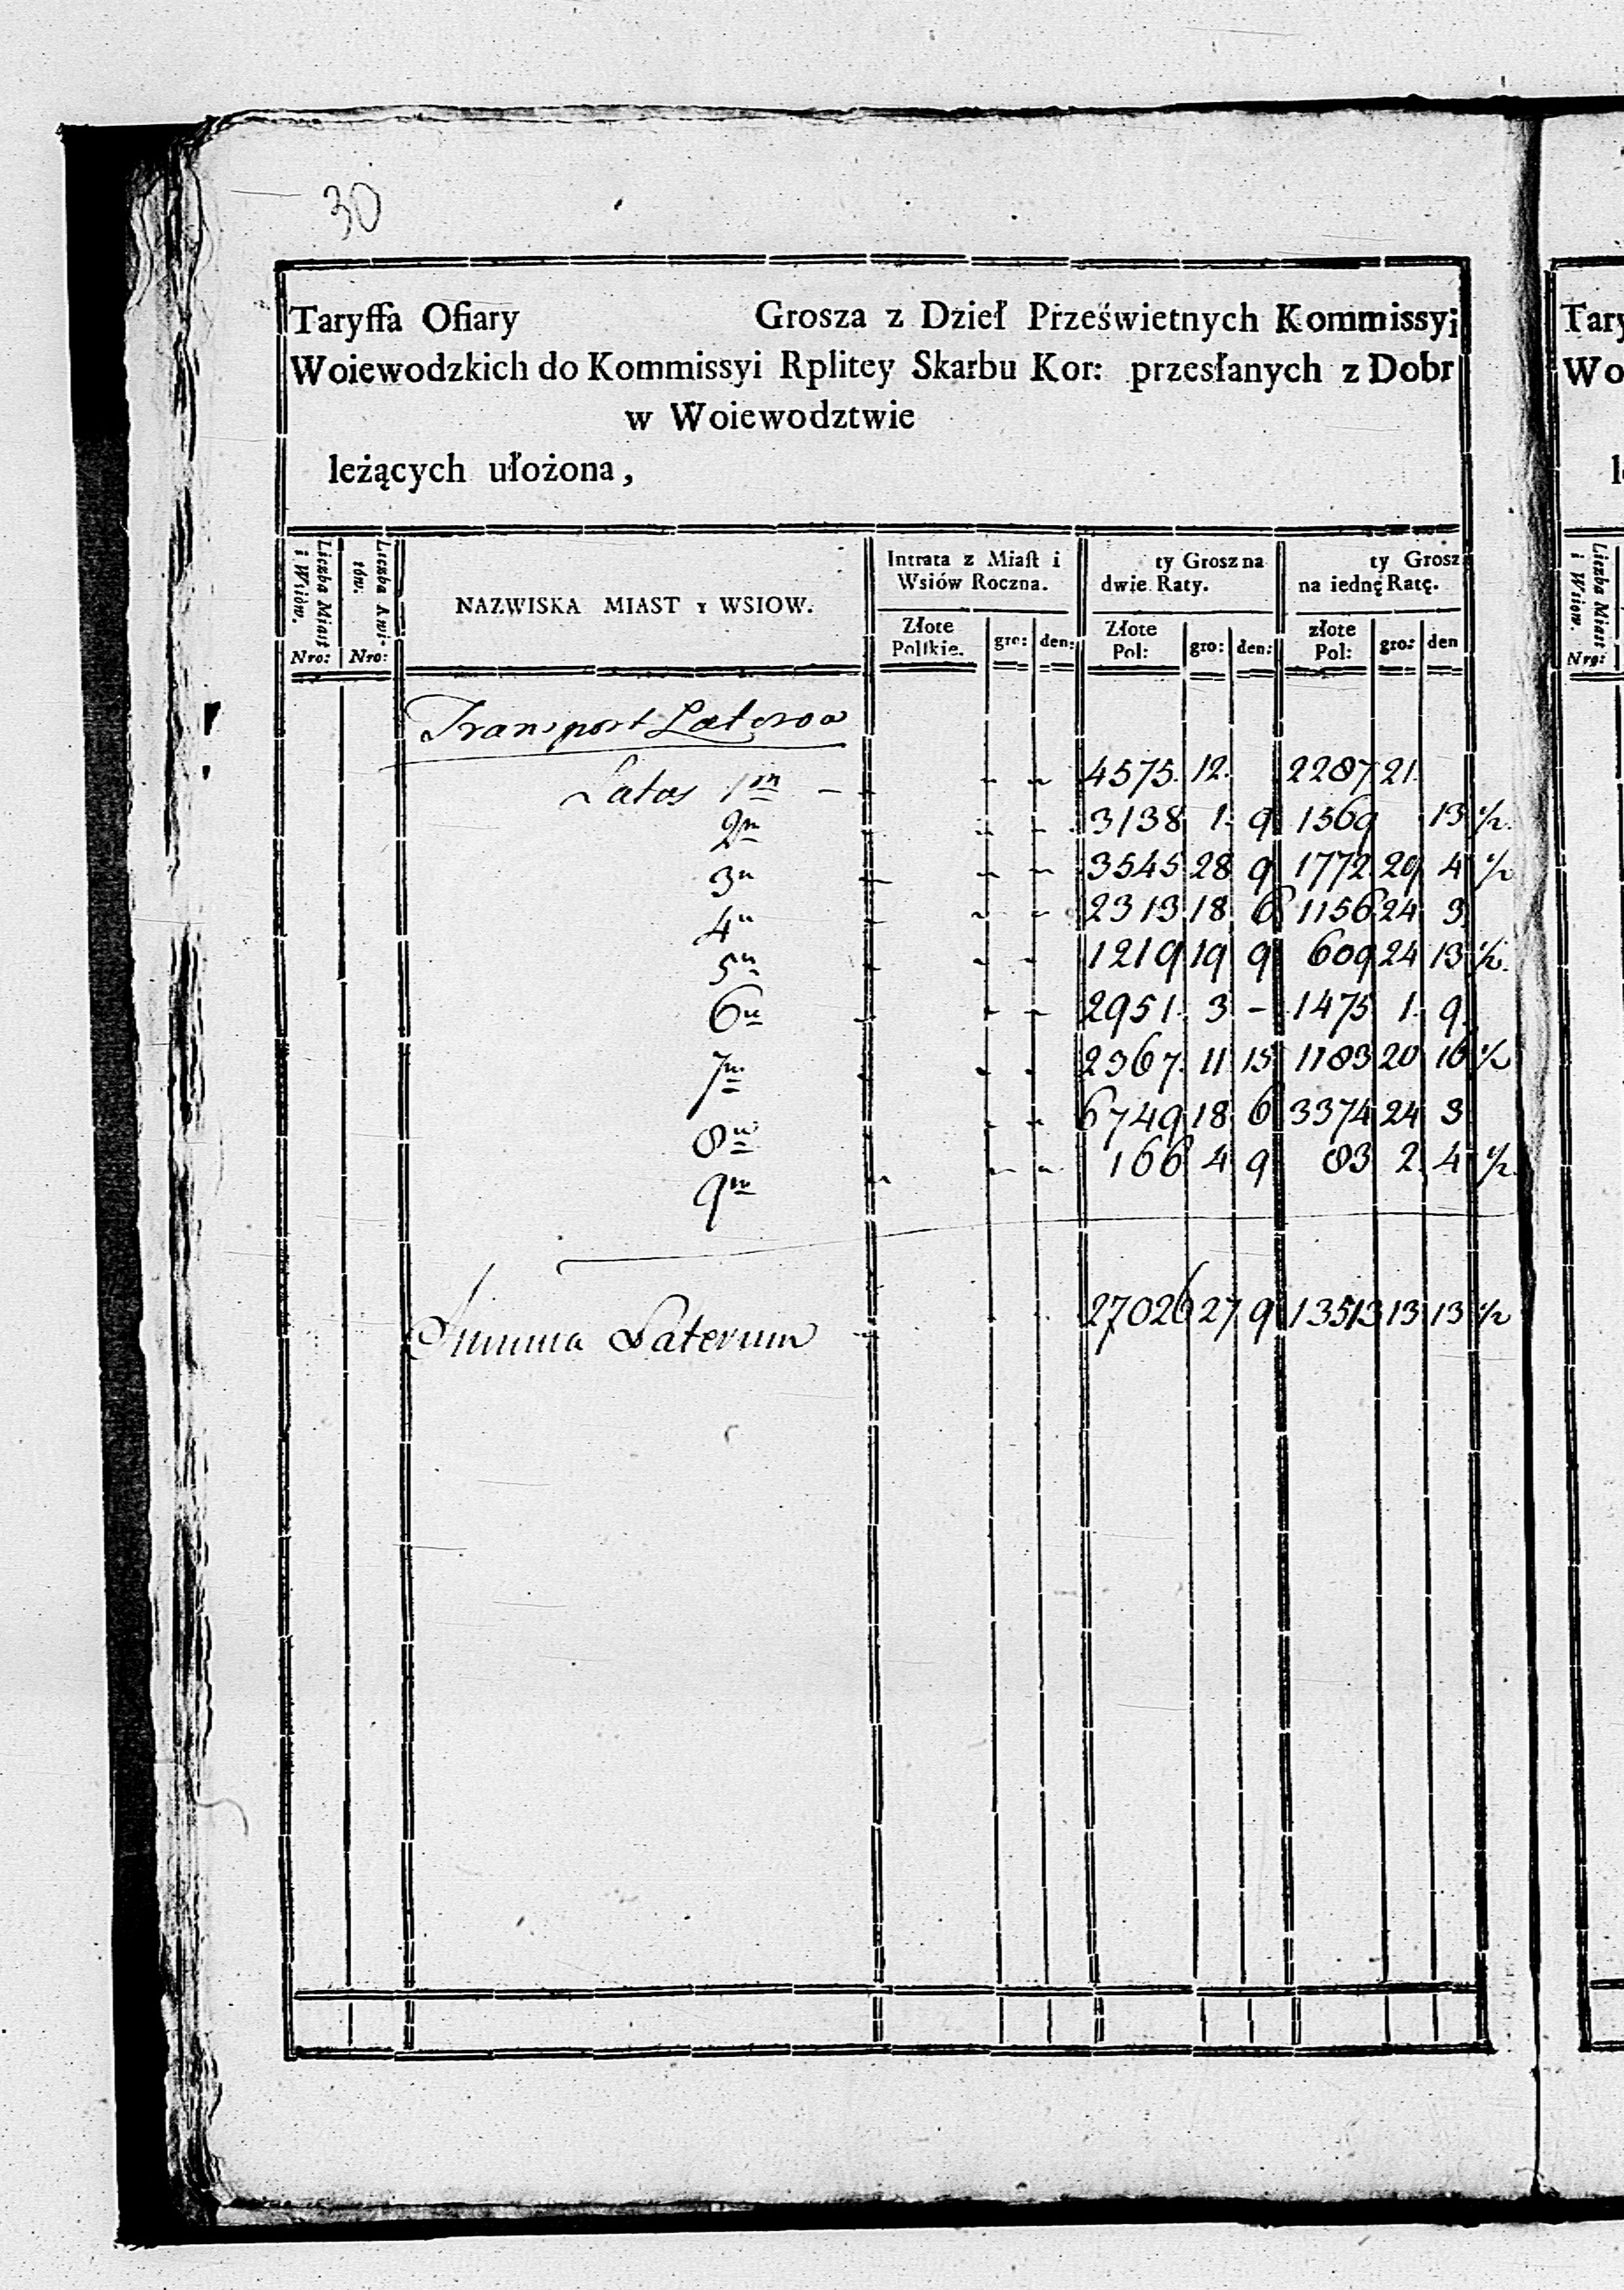 30
Taryffa Ofiary Grosza z Dzieł Prześwietnych Kommissyi
Woiewodzkich do Kommissyi Rplitey Skarbu Kor: przesłanych z Dobr
w Woiewodztwie
leżących ułożona,
Liczba Miast i Wsiów. Nro:
Liczba Kwitów. Nro:
NAZWISKA MIAST Y WSIOW.
Intrata z Miast i Wsiów Roczna.
Złote Polskie. gro: den:
ty Grosz na dwie Raty.
Złote Pol: gro: den:
ty Grosz na iednę Ratę.
złote Pol: gro: den
Transport Laterow
Latus 1m - - - 4575. 12. 2287 21.
2m - - 3138 1. 9 1569 13 1/2.
3u - - - 3545 28 9 1772. 29 4 1/2
4u - - - 2313 18 6 1156 24 3
5u - - - 1219 19 9 609 24 13 1/2.
6u - - - 2951. 3 - 1475 1. 9
7m - - - 2367. 11 15 1183 20 16 1/2
8u - - 6749 18 6 3374 24 3
9m - - - 166 4 9 83 2 4 1/2.
Summa Laterum - 27026 27 9 13513 13 13 1/2
Tary
Wo
l
Liczba Miast i Wsiow. Nro: